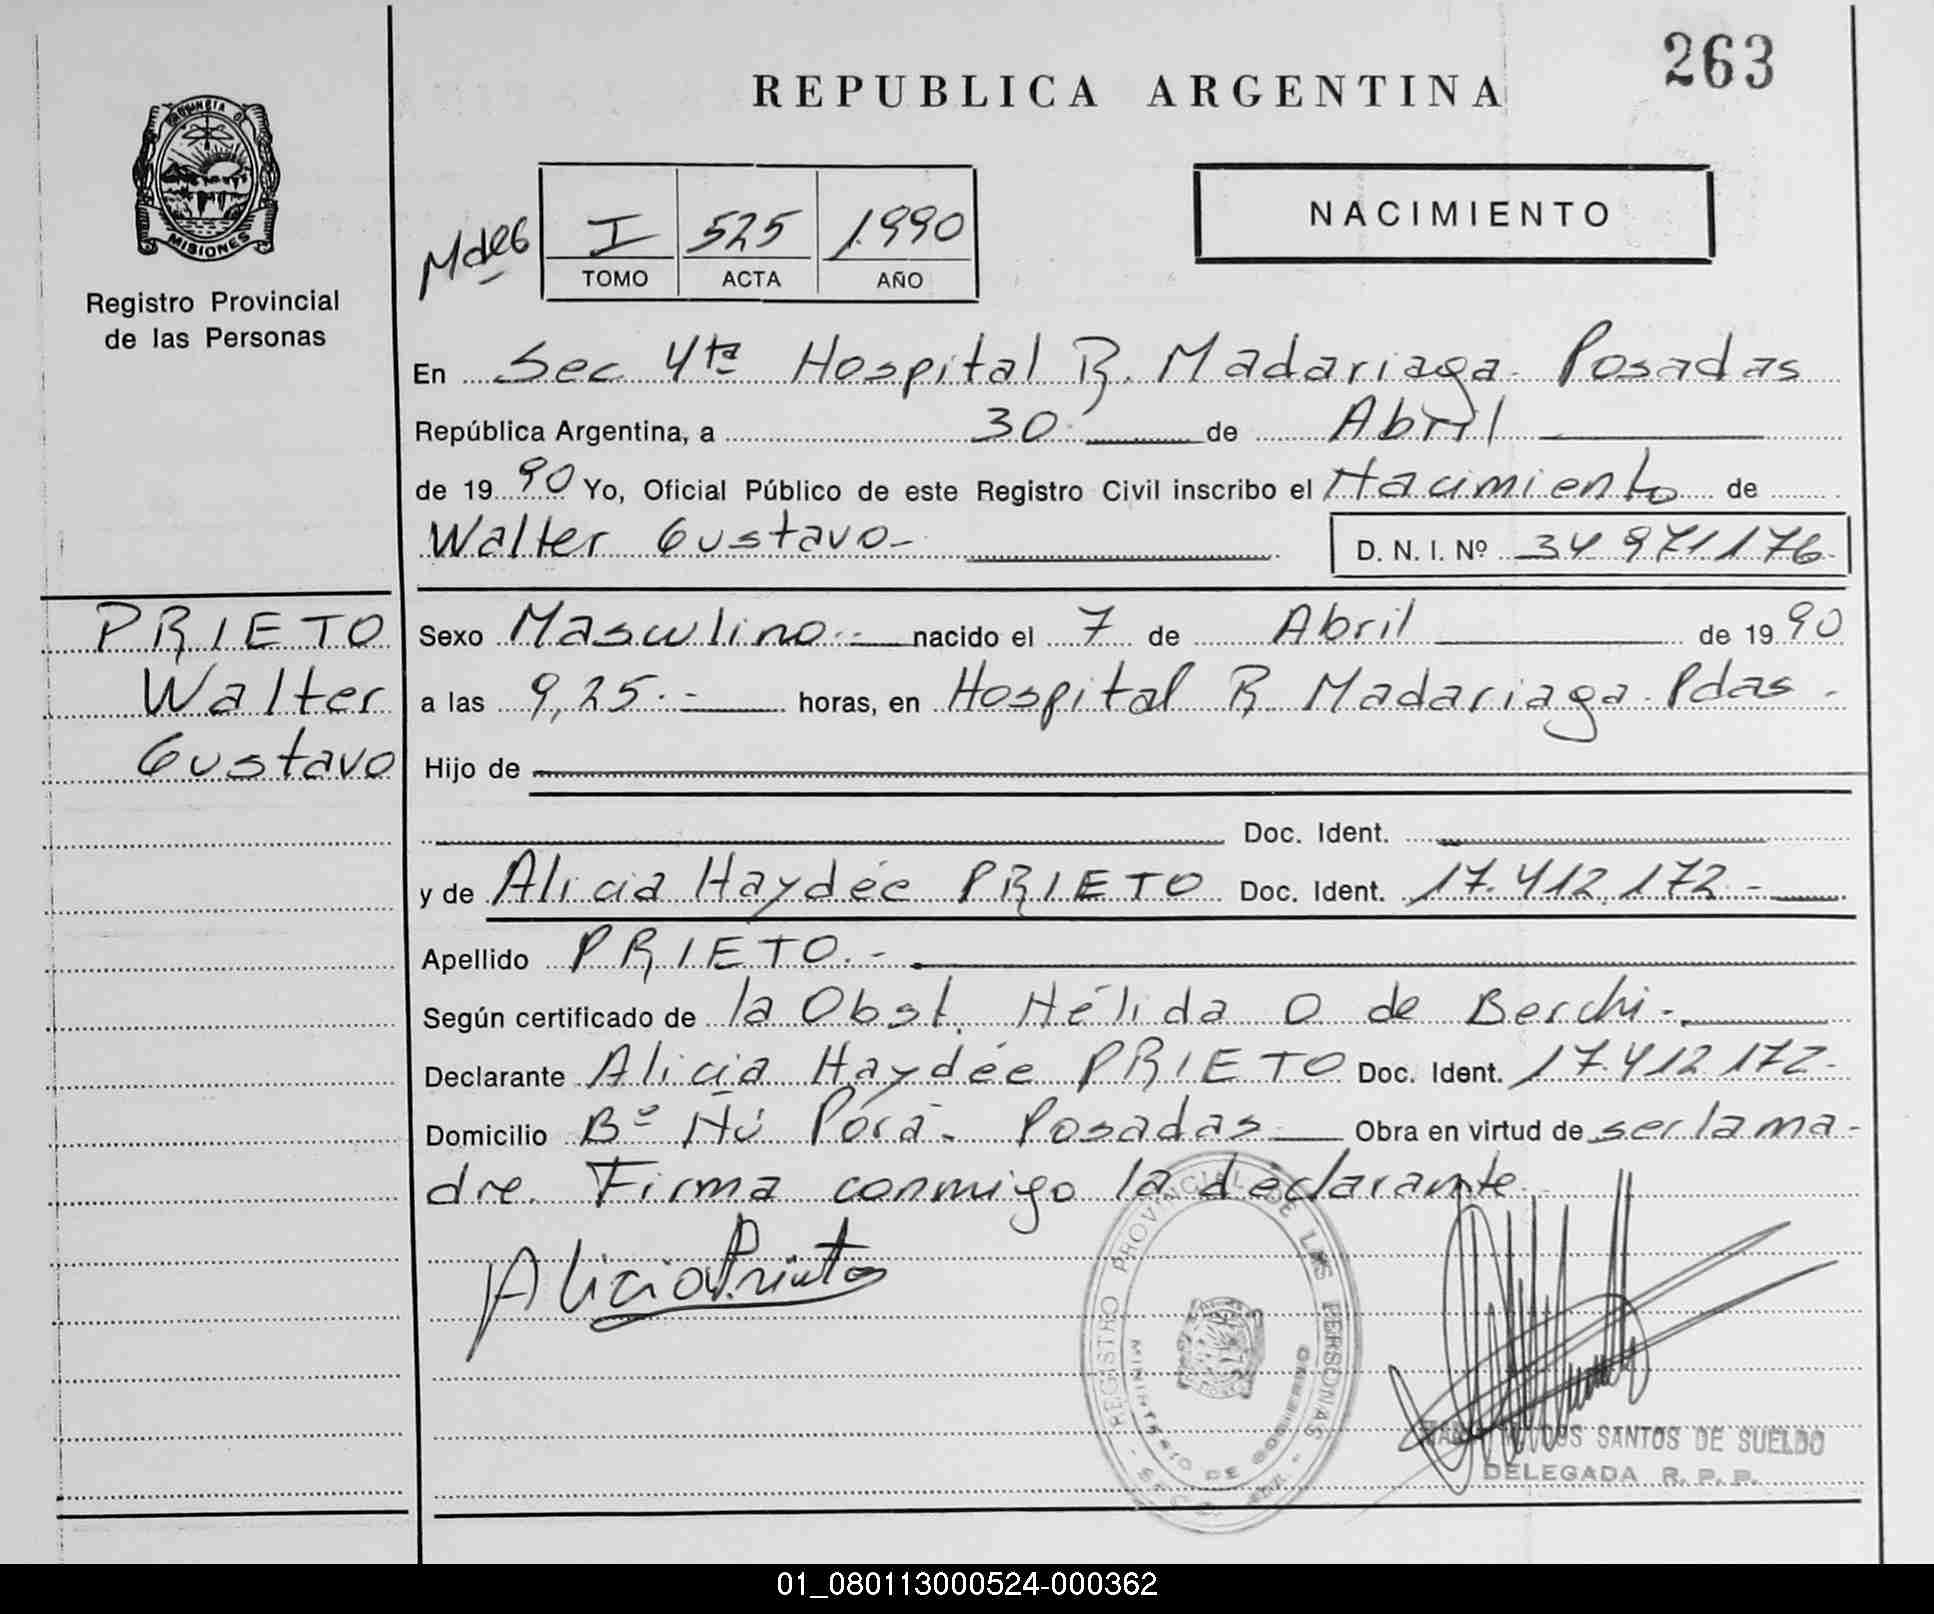 263
REPUBLICA ARGENTINA
PROVINCIA DE
MISIONES
Registro Provincial
de las Personas
I 525 1990
TOMO ACTA AÑO
NACIMIENTO
En Sec 4ta Hospital R. Madariaga - Posadas
República Argentina, a 30 de Abril
de 1990 Yo, Oficial Público de este Registro Civil inscribo el Nacimiento de
Walter Gustavo - D. N. I. Nº 34 971 176 -
PRIETO
Walter
Gustavo
Sexo Masculino.- nacido el 7 de Abril de 1990
a las 9,25.- horas, en Hospital R Madariaga - Pdas -
Hijo de
Doc. Ident.
y de Alicia Haydée PRIETO Doc. Ident. 17.412.172.-
Apellido PRIETO.-
Según certificado de la Obst. Nélida O de Berchi -
Declarante Alicia Haydée PRIETO Doc. Ident. 17.412.172-
Domicilio Bº Ñú Porá - Posadas Obra en virtud de ser la ma-
dre. Firma conmigo la declarante
Alicia Prieto
REGISTRO PROVINCIAL DE LAS PERSONAS
MINISTERIO DE GOBIERNO
SANTOS DE SUELDO
DELEGADA R. P. P.
01_080113000524-000362